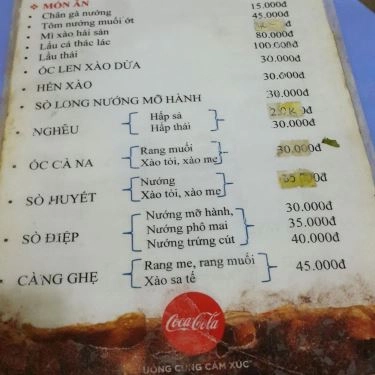 ❖ MÓN ĂN
• Chân gà nướng 15.000đ
• Tôm nướng muối ớt 45.000đ
• Mì xào hải sản
• Lẩu cá thác lác 80.000đ
• Lẩu thái 100.000đ
• ÓC LEN XÀO DỪA 30.000đ
• HẾN XÀO 30.000đ
• SÒ LONG NƯỚNG MỠ HÀNH 30.000đ
• NGHÊU Hấp sả
Hấp thái 30.000đ
• ÓC CÀ NA Rang muối 30.000đ
Xào tỏi, xào me
• SÒ HUYẾT Nướng
Xào tỏi, xào me
• SÒ ĐIỆP Nướng mỡ hành, 30.000đ
Nướng phô mai 35.000đ
Nướng trứng cút 40.000đ
• CÀNG GHẸ Rang me, rang muối 45.000đ
Xào sa tế
Coca-Cola
UỐNG CÙNG CẢM XÚC